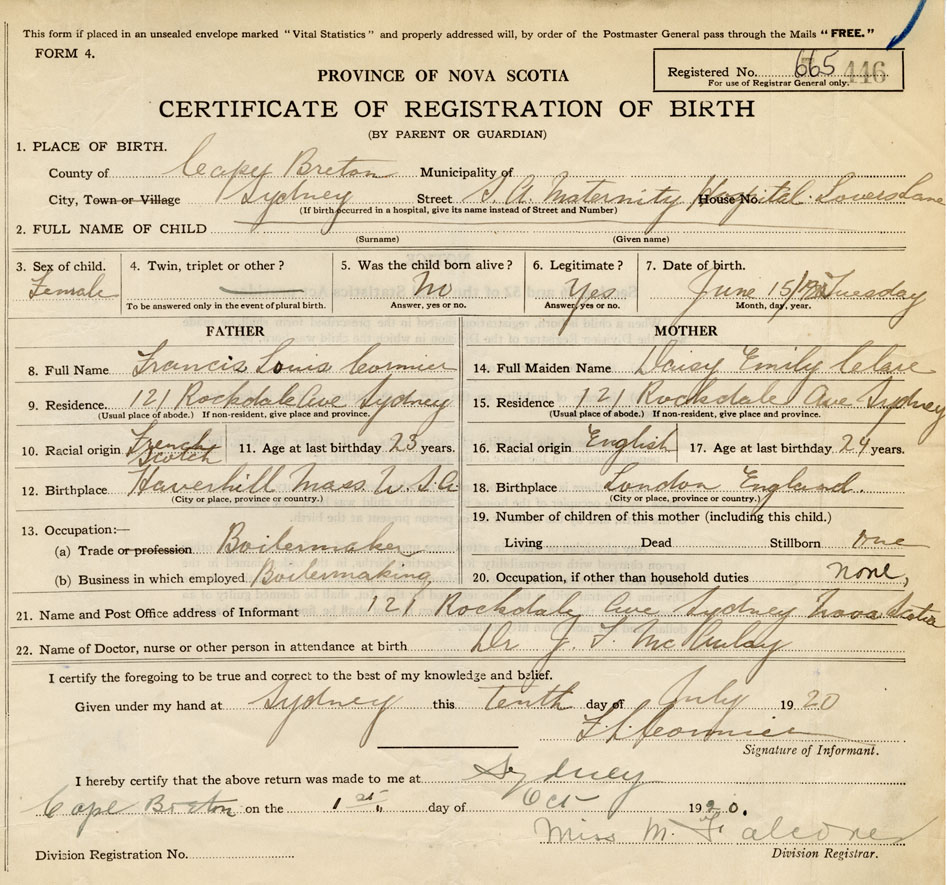 This form if placed in an unsealed envelope marked "Vital Statistics" and properly addressed will, by order of the Postmaster General pass through the Mails "FREE."
FORM 4.
Registered No. 665 446
For use of Registrar General only.
PROVINCE OF NOVA SCOTIA
CERTIFICATE OF REGISTRATION OF BIRTH
(BY PARENT OR GUARDIAN)
1. PLACE OF BIRTH.
County of Cape Breton Municipality of
City, Town or Village Sydney Street S. A. Maternity Hospital House No. Lovers Lane
(If birth occurred in a hospital, give its name instead of Street and Number)
2. FULL NAME OF CHILD
(Surname) (Given name)
3. Sex of child. 4. Twin, triplet or other? 5. Was the child born alive? 6. Legitimate? 7. Date of birth.
Female No Yes June 15/ Tuesday
To be answered only in the event of plural birth. Answer, yes or no. Answer, yes or no. Month, day, year.
FATHER
8. Full Name Francis Louis Cormier
9. Residence 121 Rockdale Ave Sydney
(Usual place of abode.) If non-resident, give place and province.
10. Racial origin French Scotch 11. Age at last birthday 23 years.
12. Birthplace Haverhill Mass U.S.A.
(City or place, province or country.)
13. Occupation:—
(a) Trade or profession Boilermaker
(b) Business in which employed Boilermaking
MOTHER
14. Full Maiden Name Daisy Emily Clare
15. Residence 121 Rockdale Ave Sydney
(Usual place of abode.) If non-resident, give place and province.
16. Racial origin English 17. Age at last birthday 24 years.
18. Birthplace London England.
(City or place, province or country.)
19. Number of children of this mother (including this child.)
Living Dead Stillborn one
20. Occupation, if other than household duties none,
21. Name and Post Office address of Informant 121 Rockdale Ave Sydney Nova Scotia
22. Name of Doctor, nurse or other person in attendance at birth Dr J. F. McAulay
I certify the foregoing to be true and correct to the best of my knowledge and belief.
Given under my hand at Sydney this tenth day of July 1920
F L Cormier
Signature of Informant.
I hereby certify that the above return was made to me at Sydney
Cape Breton on the 1st day of Oct 1920.
Miss M. Falconer
Division Registrar.
Division Registration No.